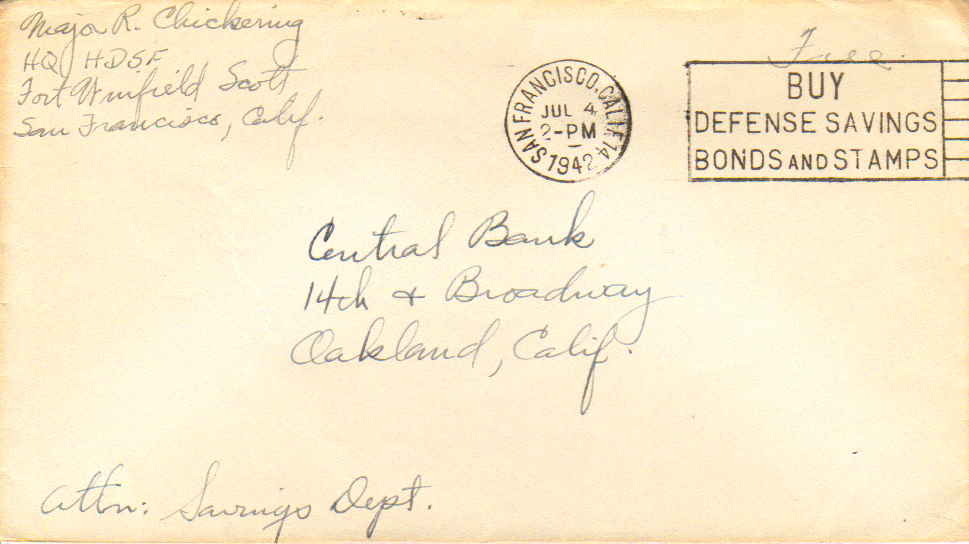 Major R. Chickering
HQ HDSF
Fort Winfield Scott
San Francisco, Calif.
Free.
SAN FRANCISCO, CALIF. 14
JUL 4
2-PM
1942
BUY
DEFENSE SAVINGS
BONDS AND STAMPS
Central Bank
14th & Broadway
Oakland, Calif.
Attn: Savings Dept.